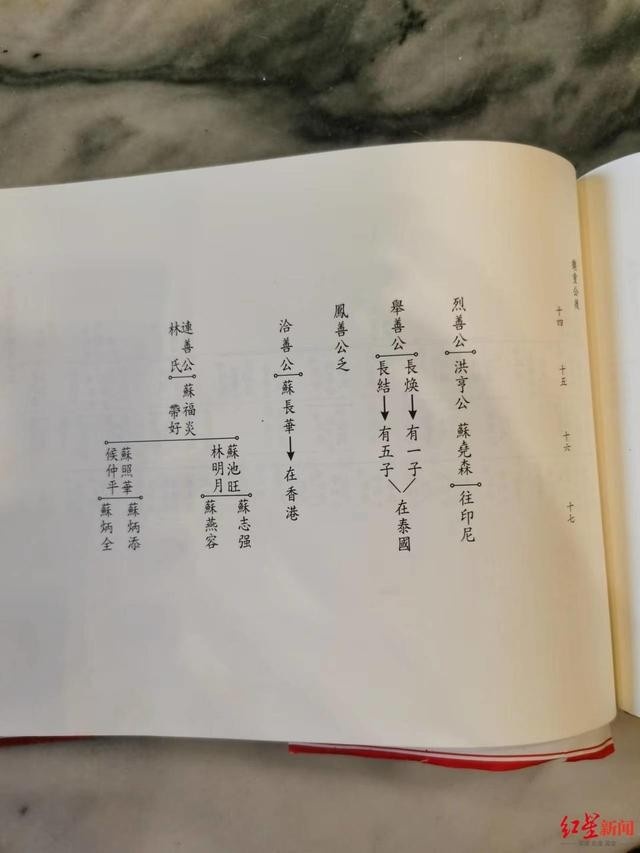 十四 十五 十六 十七
烈善公 洪亨公 蘇堯森 往印尼
舉善公
長煥 有一子
長結 有五子
在泰國
鳳善公乏
洽善公 蘇長華 在香港
連善公 蘇福炎
林氏 帶好
蘇池旺
林明月
蘇志强
蘇燕容
蘇照華
候仲平
蘇炳添
蘇炳全
红星新闻